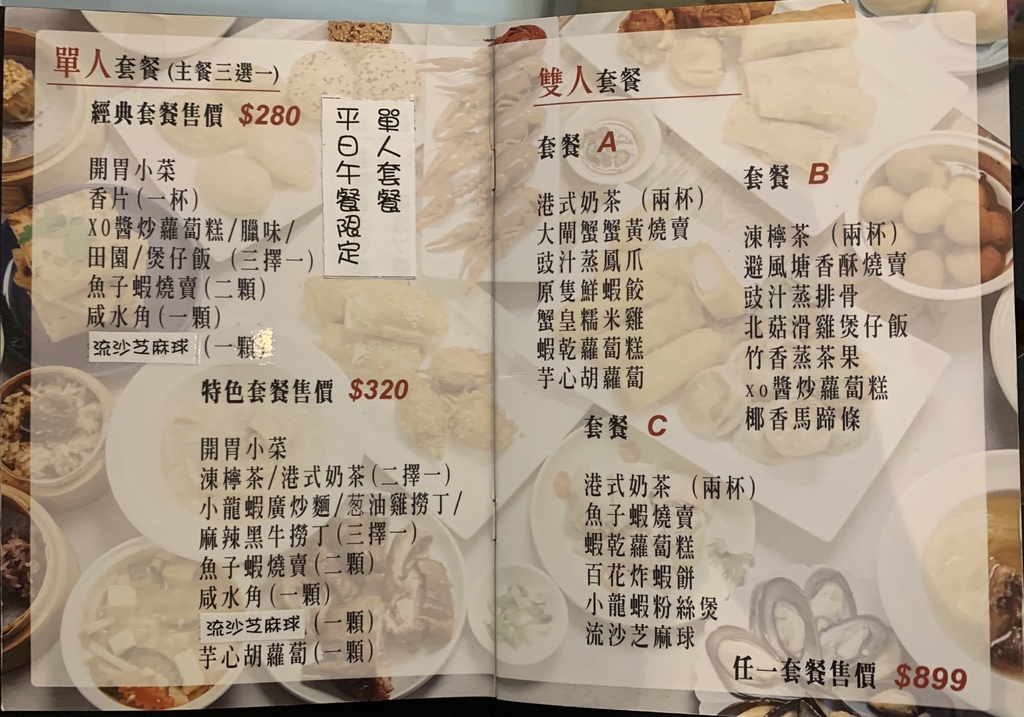 單人套餐(主餐三選一)
經典套餐售價 $280
單人套餐
平日午餐限定
開胃小菜
香片(一杯)
XO醬炒蘿蔔糕/臘味/
田園/煲仔飯 (三擇一)
魚子蝦燒賣(二顆)
咸水角(一顆)
流沙芝麻球 (一顆)
特色套餐售價 $320
開胃小菜
凍檸茶/港式奶茶(二擇一)
小龍蝦廣炒麵/葱油雞撈丁/
麻辣黑牛撈丁(三擇一)
魚子蝦燒賣(二顆)
咸水角(一顆)
流沙芝麻球 (一顆)
芋心胡蘿蔔(一顆)
雙人套餐
套餐 A
港式奶茶 (兩杯)
大閘蟹蟹黃燒賣
豉汁蒸鳳爪
原隻鮮蝦餃
蟹皇糯米雞
蝦乾蘿蔔糕
芋心胡蘿蔔
套餐 B
凍檸茶 (兩杯)
避風塘香酥燒賣
豉汁蒸排骨
北菇滑雞煲仔飯
竹香蒸茶果
xo醬炒蘿蔔糕
椰香馬蹄條
套餐 C
港式奶茶 (兩杯)
魚子蝦燒賣
蝦乾蘿蔔糕
百花炸蝦餅
小龍蝦粉絲煲
流沙芝麻球
任一套餐售價 $899